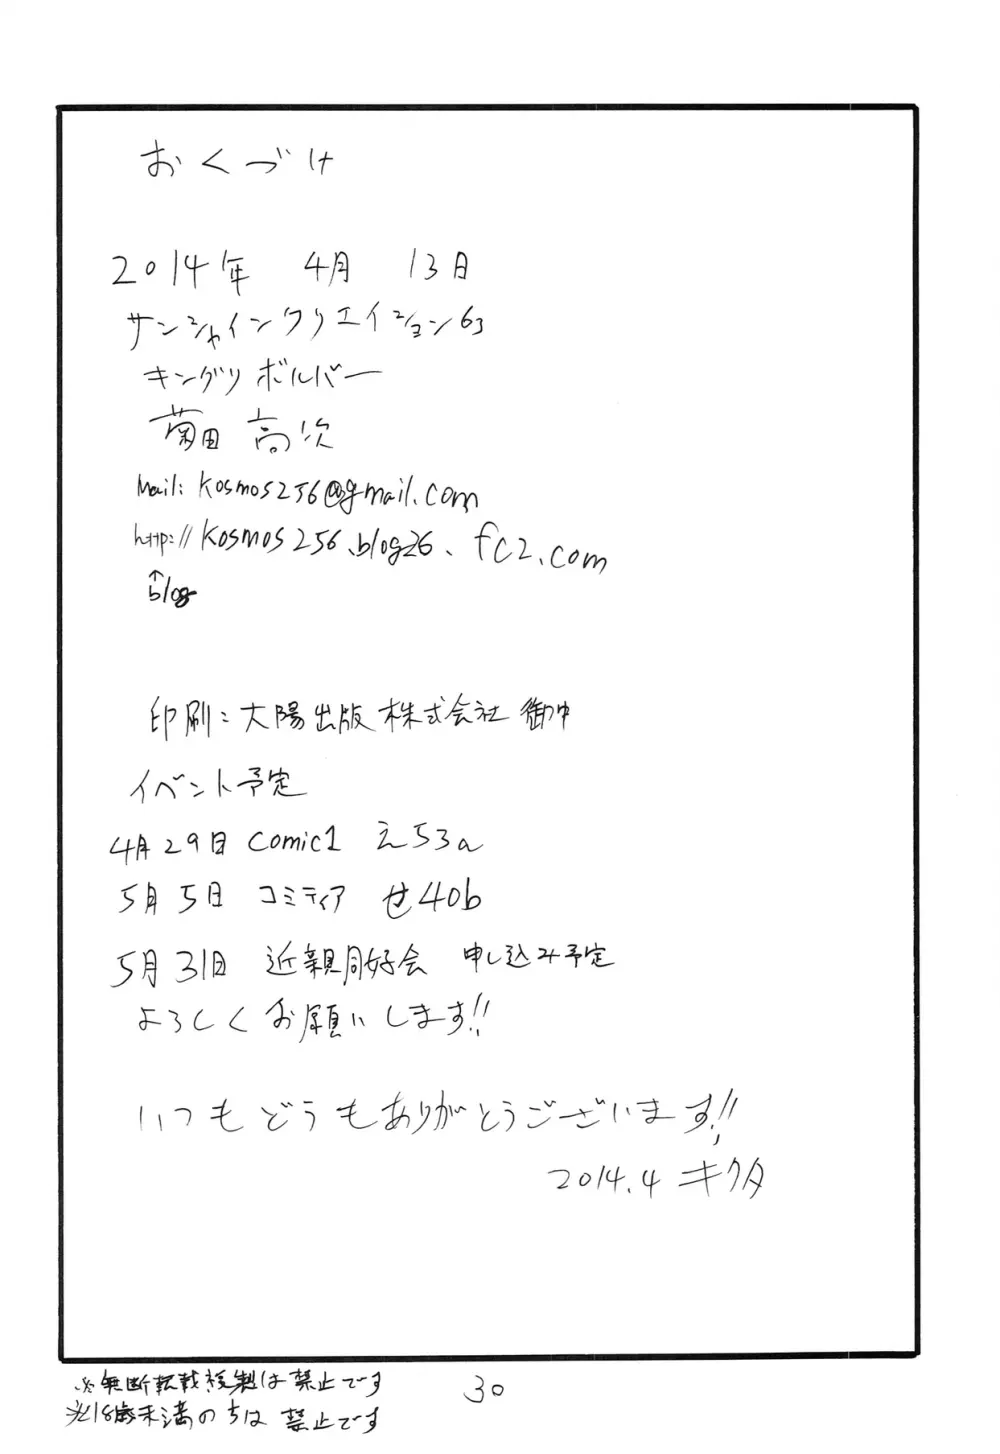 おくづけ
2014年 4月 13日
サンシャインクリエイション63
キングリボルバー
菊田 高次
Mail: kosmos256@gmail.com
http://kosmos256.blog26.fc2.com
↑
blog
印刷: 大陽出版株式会社 御中
イベント予定
4月29日 comic1 え53a
5月5日 コミティア せ40b
5月31日 近親同好会 申し込み予定
よろしくお願いします!!
いつもどうもありがとうございます!!
2014.4 キクタ
※無断転載複製は禁止です
※18歳未満の方は禁止です
30